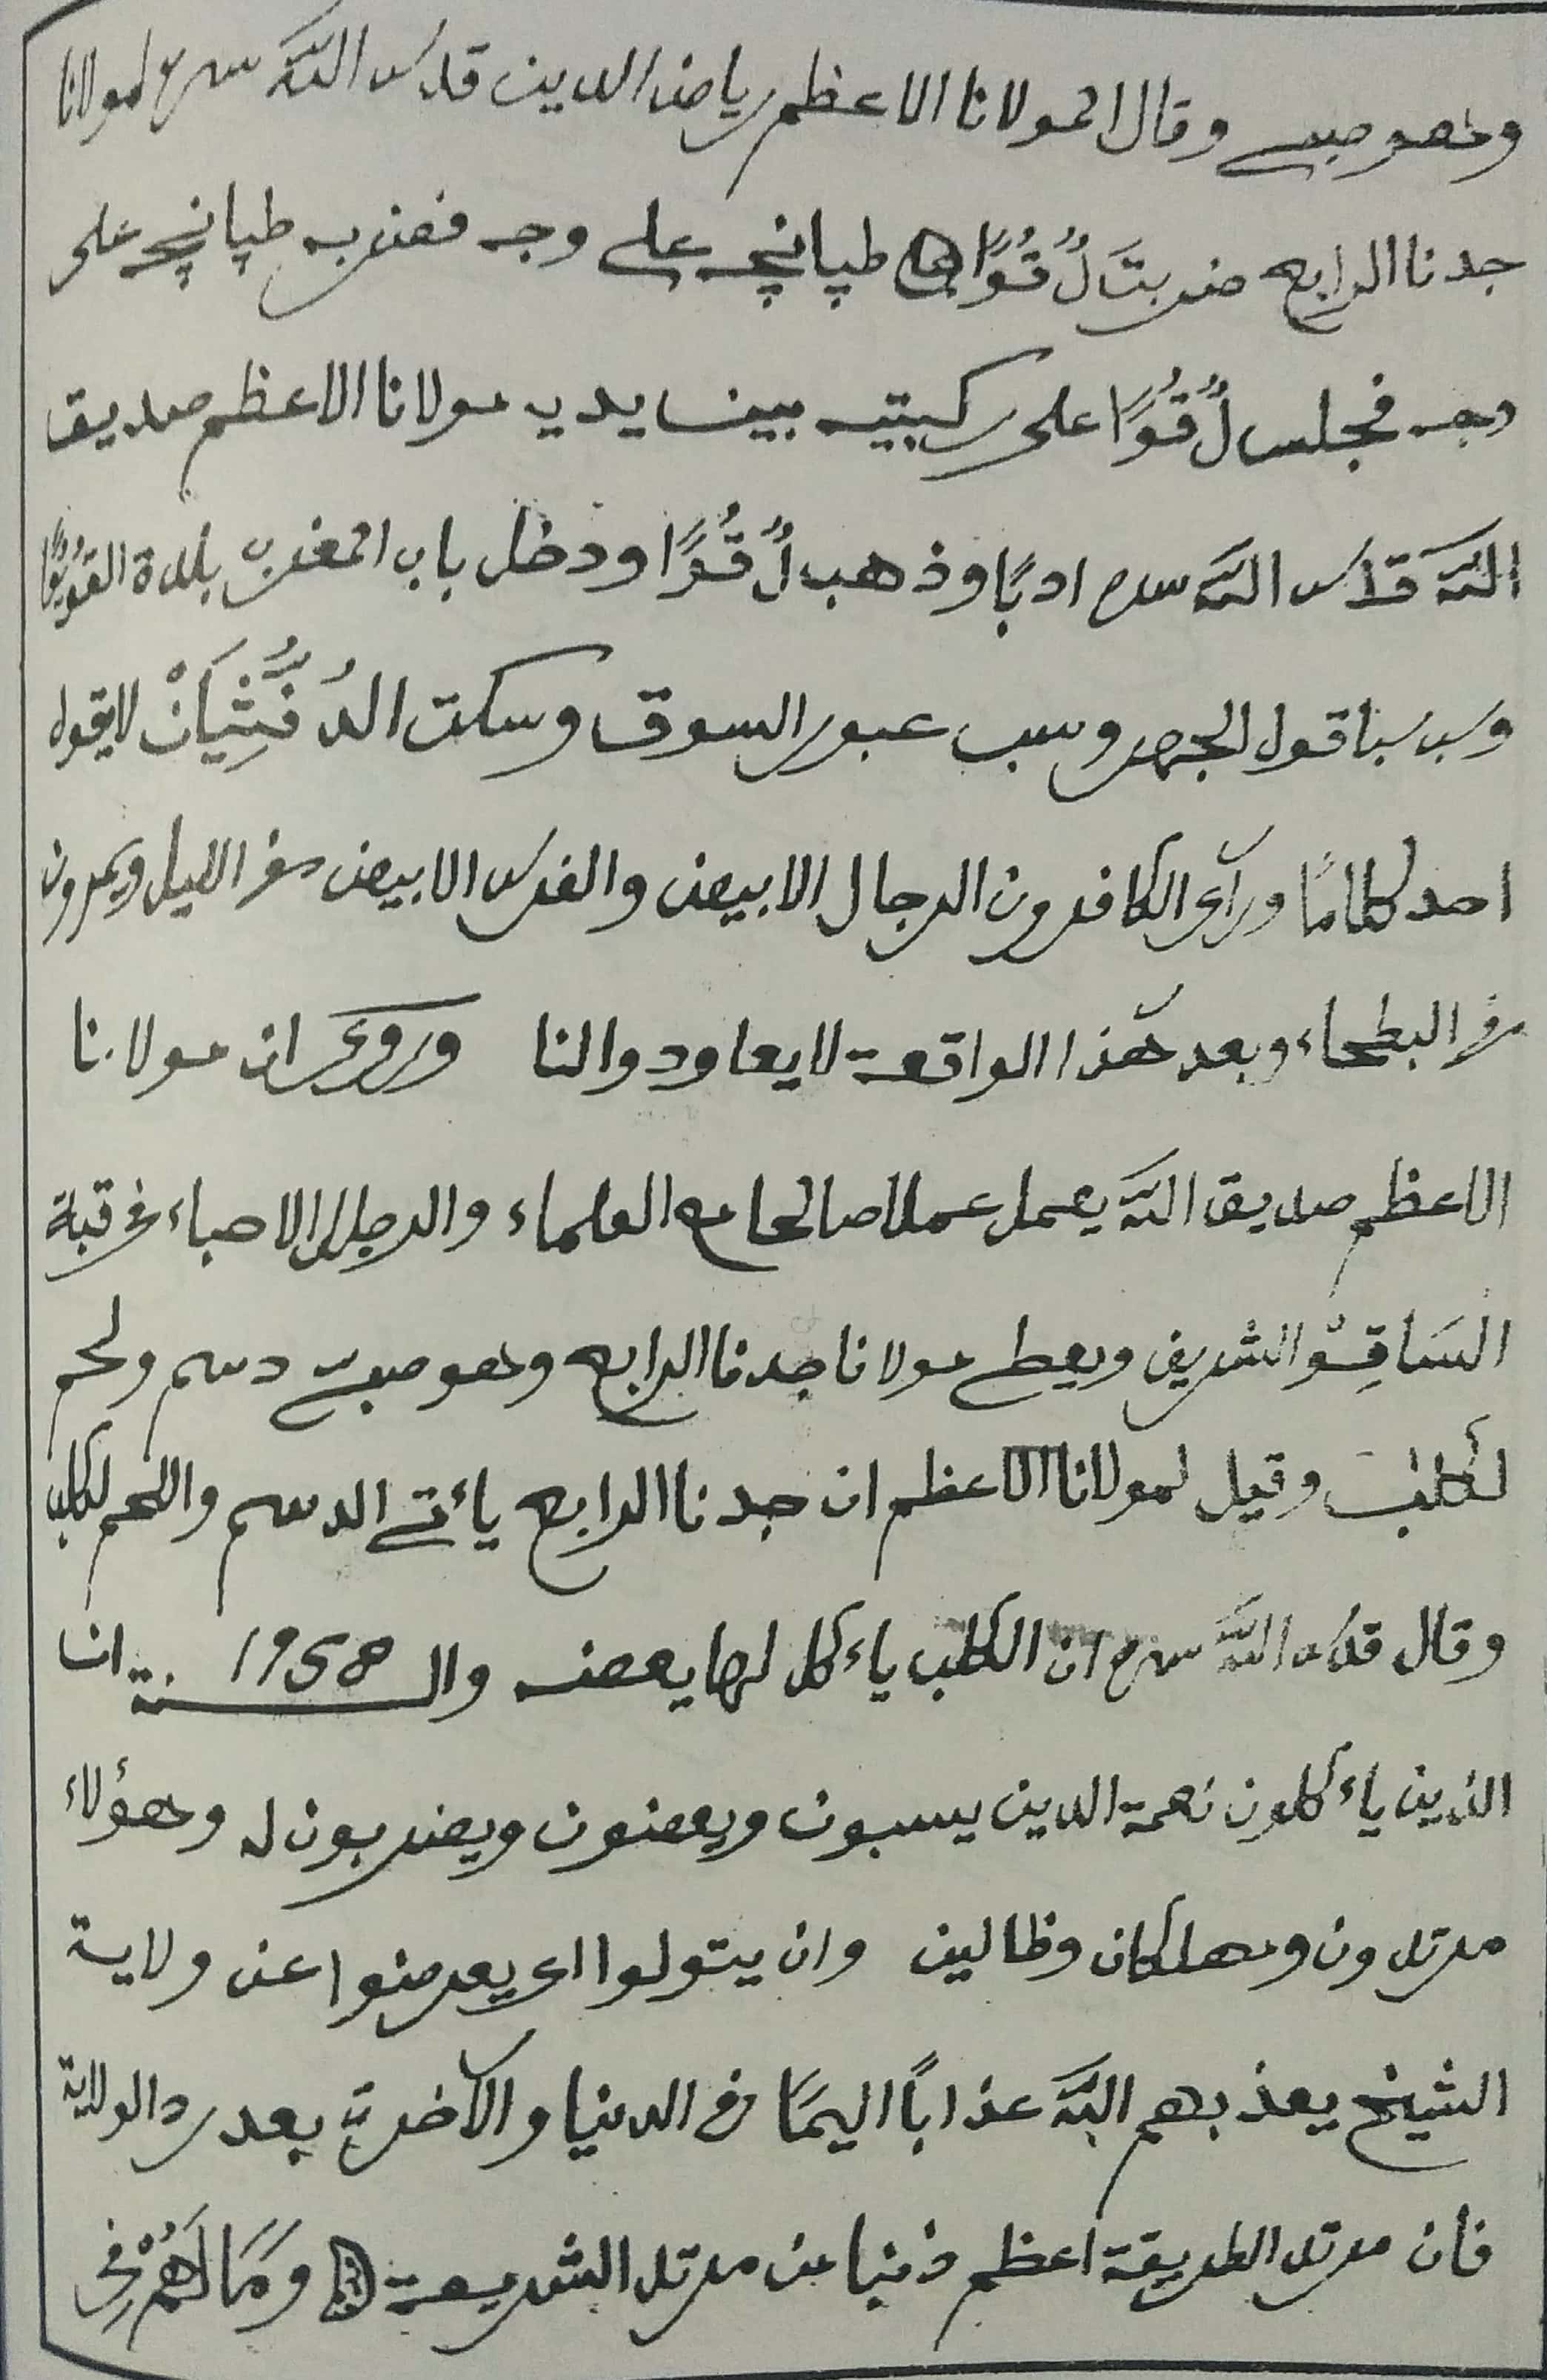 وخصوصے وقال المولانا الاعظم رياض الدين قدس الله سره لمولانا
جدنا الرابع ضربت لُقُوًا طپانچه علے وجه فضربه طپانچه على
وجه فجلس لُقُوًا على ركبتيه بين يديه مولانا الاعظم صديق
الله قدس الله سره ادبًا وذهب لُقُوًا ودخل باب المغرب بلدة
وسبب قول الجهر وسب عبور السوق وسكت لا يقول
احد كلامًا ورآى الكافرون الرجال الابيض والفرس الابيض فى الليل ويمرون
فى البطحاء وبعد هٰذا الواقعة لا يعاودوا لنا وروى ان مولانا
الاعظم صديق الله يعمل عملا صالحا مع العلماء والرجال الاحباء فى قبلة
الشريف ويعطے مولانا جدنا الرابع وخصوصے دسم ولحم
لكلب وقيل لمولانا الاعظم ان جدنا الرابع يأتے الدسم واللحم لكلب
وقال قدس الله سره ان الكلب ياءكل لها يعضه والسنة ان
الذين ياءكلون نعمة الدين يسبون ويعضون ويضربون له وهؤلاء
مرتدون وهلكان وظالين وان يتولوا اى يعرضوا عن ولاية
الشيخ يعذبهم الله عذابًا اليمًا فى الدنيا والآخرة بعد رد الولاية
فان مرتد الطريقة اعظم ذنبا من مرتد الشريعة وَمَا لَهُمْ فِى